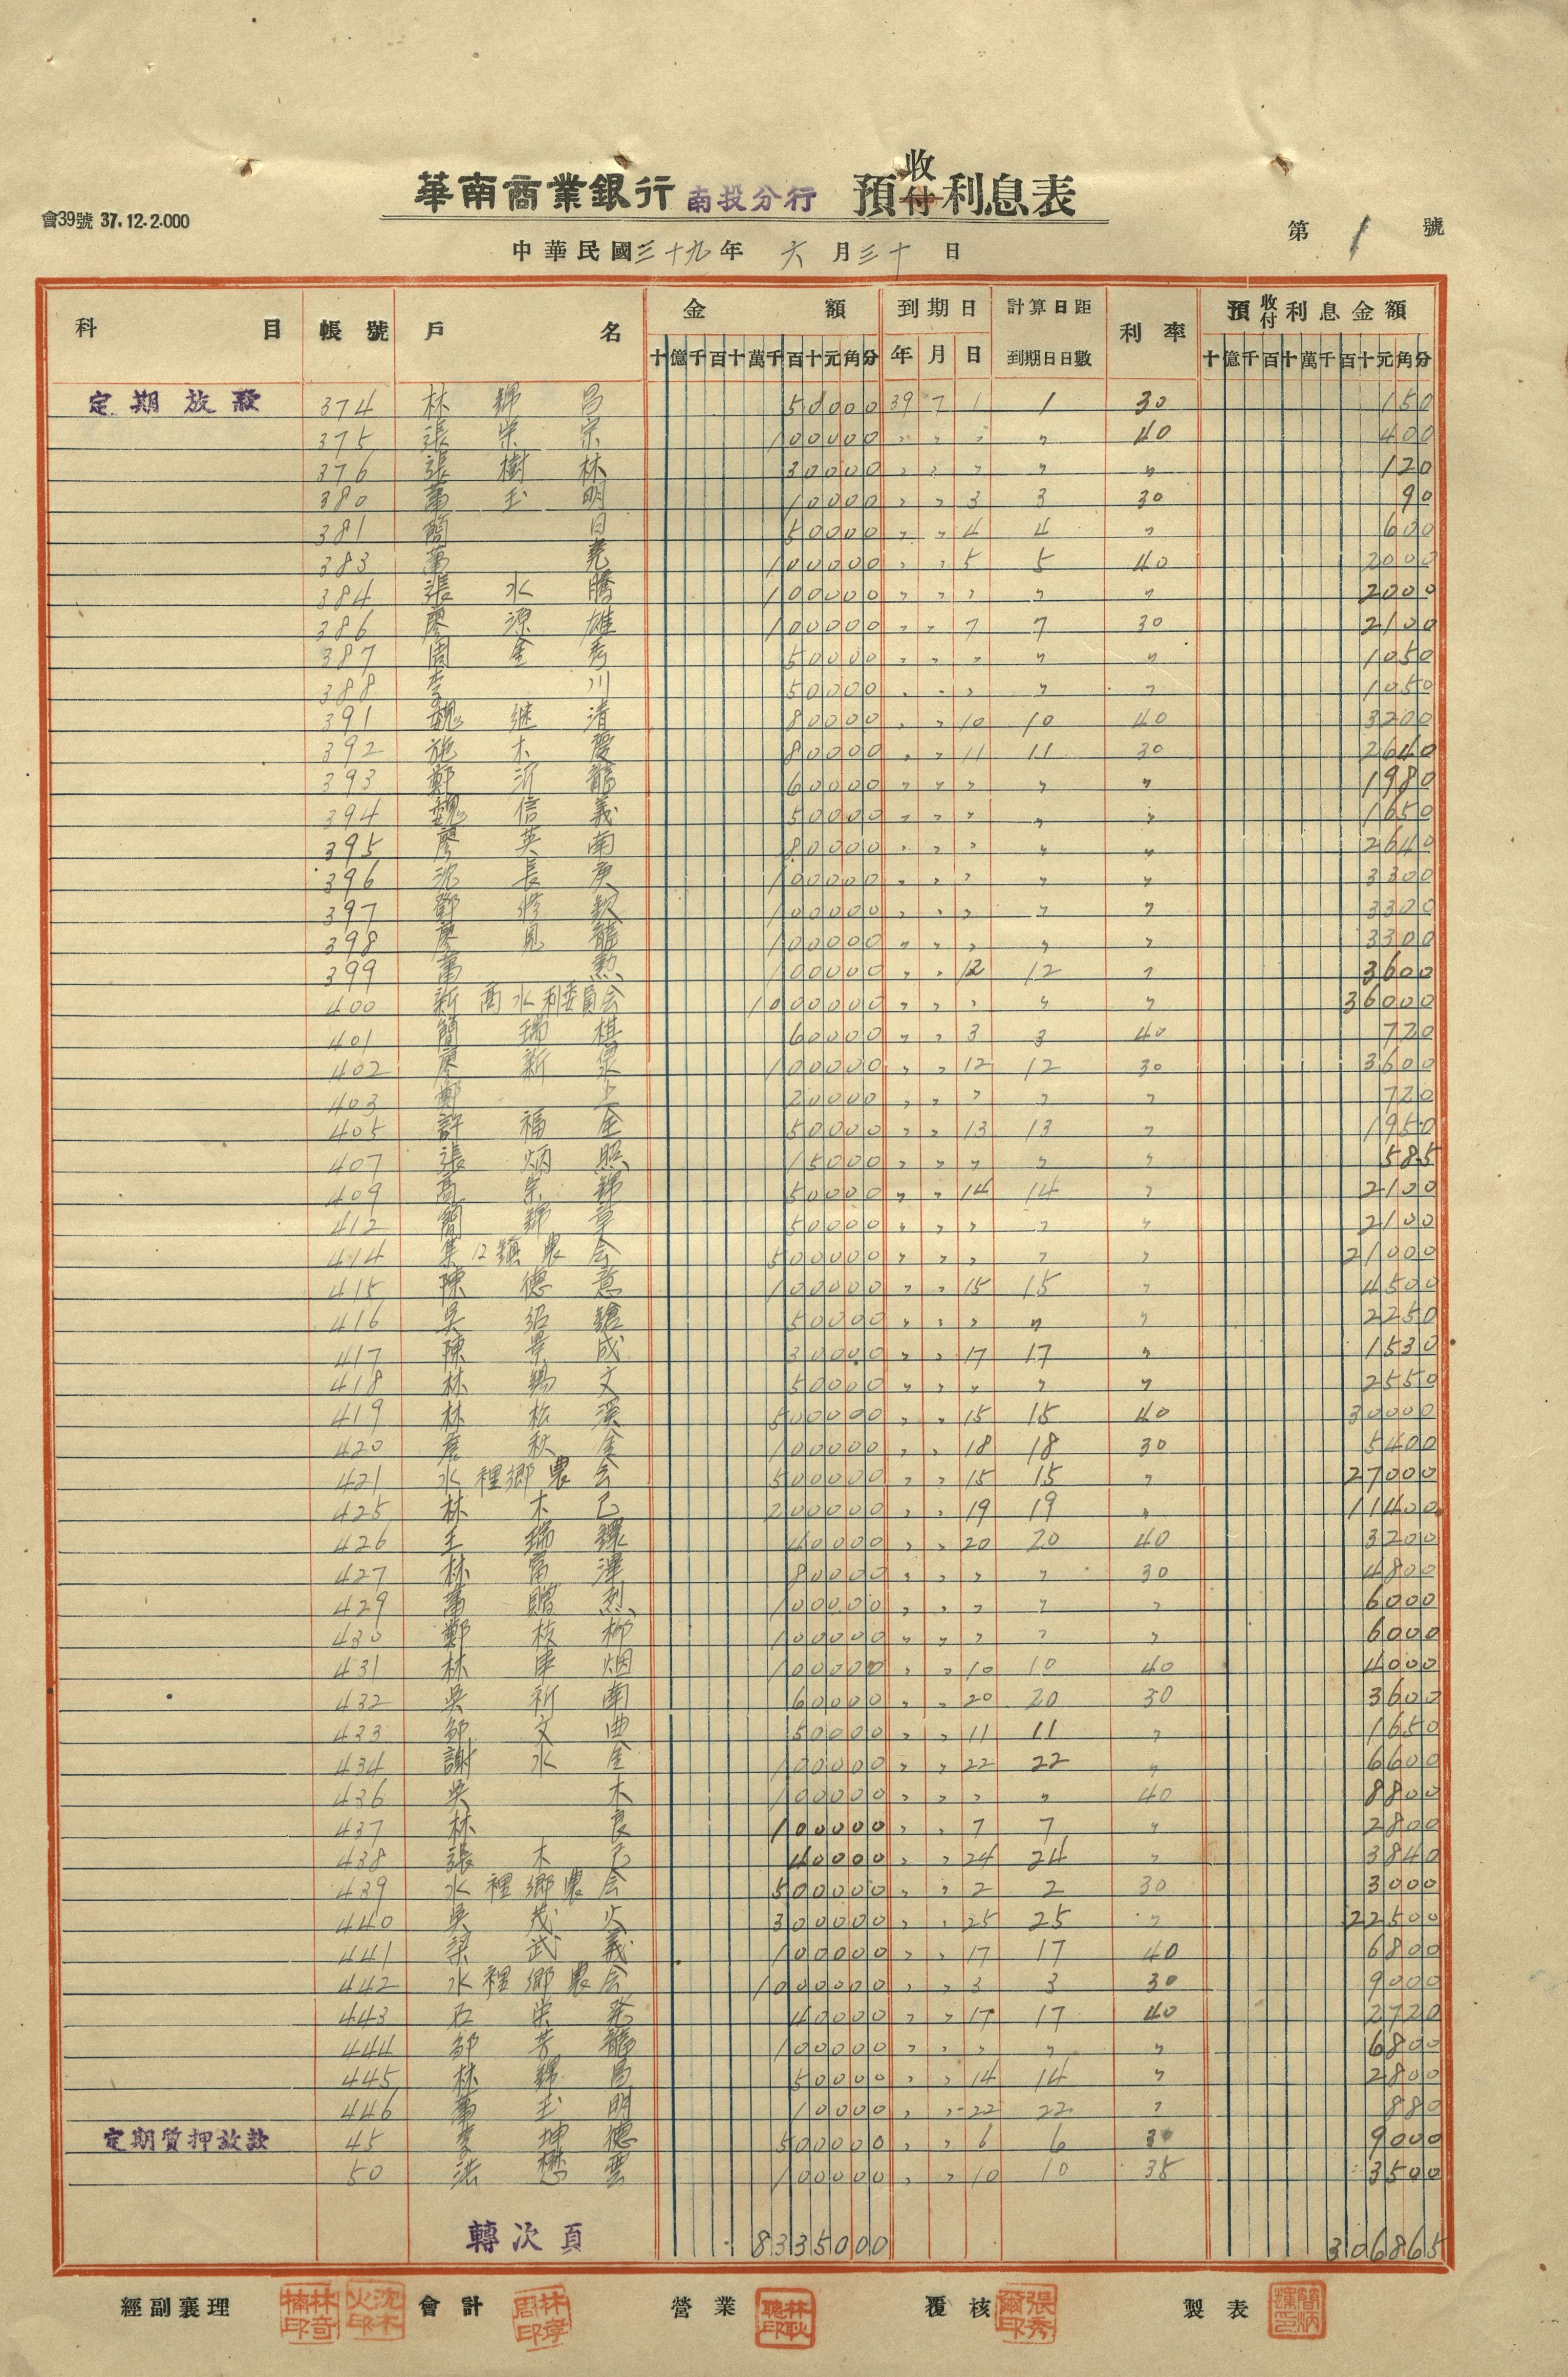 會39號 37.12.2.000
華南商業銀行 南投分行 預收付利息表
第 1 號
中華民國三十九年 六 月三十 日
科 目 帳 號 戶 名 金 額 到期日 計算日距到期日日數 利 率 預收付利息金額
十億千百十萬千百十元角分 年 月 日 十億千百十萬千百十元角分
定期放款 374 林錦昌 50000 39 7 1 1 30 150
375 張榮宗 100000 〃 〃 〃 〃 40 400
376 張樹林 30000 〃 〃 〃 〃 〃 120
380 萬玉明 10000 〃 〃 3 3 30 90
381 簡日 50000 〃 〃 4 4 〃 600
383 萬尭 100000 〃 〃 5 5 40 2000
384 張水騰 100000 〃 〃 〃 〃 〃 2000
386 廖源雄 100000 〃 〃 7 7 30 2100
387 周金秀 50000 〃 〃 〃 〃 〃 1050
388 李川 50000 〃 〃 〃 〃 〃 1050
391 魏継清 80000 〃 〃 10 10 40 3200
392 施木慶 80000 〃 〃 11 11 30 2640
393 鄭沂龍 60000 〃 〃 〃 〃 〃 1980
394 魏信義 50000 〃 〃 〃 〃 〃 1650
395 廖英南 80000 〃 〃 〃 〃 〃 2640
396 沈長庚 100000 〃 〃 〃 〃 〃 3300
397 鄧修 100000 〃 〃 〃 〃 〃 3300
398 廖見龍 100000 〃 〃 〃 〃 〃 3300
399 萬勲 100000 〃 〃 12 12 〃 3600
400 新高水利委員会 1000000 〃 〃 〃 〃 〃 36000
401 簡瑞棋 60000 〃 〃 3 3 40 720
402 廖新 100000 〃 〃 12 12 30 3600
403 鄭上 20000 〃 〃 〃 〃 〃 720
405 許福全 50000 〃 〃 13 13 〃 1950
407 張炳照 15000 〃 〃 〃 〃 〃 585
409 高榮錦 50000 〃 〃 14 14 〃 2100
412 簡錦章 50000 〃 〃 〃 〃 〃 2100
414 集口鎮農会 500000 〃 〃 〃 〃 〃 21000
415 陳德意 100000 〃 〃 15 15 〃 4500
416 吳紹 50000 〃 〃 〃 〃 〃 2250
417 陳景成 30000 〃 〃 17 17 〃 1530
418 林鶴文 50000 〃 〃 〃 〃 〃 2550
419 林松溪 500000 〃 〃 15 15 40 30000
420 詹秋金 100000 〃 〃 18 18 30 5400
421 水裡鄉農会 500000 〃 〃 15 15 〃 27000
425 林木己 200000 〃 〃 19 19 〃 11400
426 王瑞 40000 〃 〃 20 20 40 3200
427 林富澤 80000 〃 〃 〃 〃 30 4800
429 萬贈烈 100000 〃 〃 〃 〃 〃 6000
430 鄭枝柳 100000 〃 〃 〃 〃 〃 6000
431 林串烟 100000 〃 〃 10 10 40 4000
432 吳新南 60000 〃 〃 20 20 30 3600
433 邹文曲 50000 〃 〃 11 11 〃 1650
434 謝水金 100000 〃 〃 22 22 〃 6600
436 吳木 100000 〃 〃 〃 〃 40 8800
437 林良 100000 〃 〃 7 7 〃 2800
438 張木己 40000 〃 〃 24 24 〃 3840
439 水裡鄉農会 500000 〃 〃 2 2 30 3000
440 吳茂火 300000 〃 〃 25 25 〃 22500
441 梁武義 100000 〃 〃 17 17 40 6800
442 水裡鄉農会 1000000 〃 〃 3 3 30 9000
443 石榮発 40000 〃 〃 17 17 40 2720
444 邹芳龍 100000 〃 〃 〃 〃 〃 6800
445 林錦昌 50000 〃 〃 14 14 〃 2800
446 萬玉明 10000 〃 〃 22 22 〃 880
定期質押放款 45 李坤德 500000 〃 〃 6 6 30 9000
50 洪懋雲 100000 〃 〃 10 10 35 3500
轉次頁 8335000 306865
經副襄理 林奇楠印 沈木火印 會計 林孝周印 營業 林耿聰印 覆核 張秀爾印 製表 簡炳